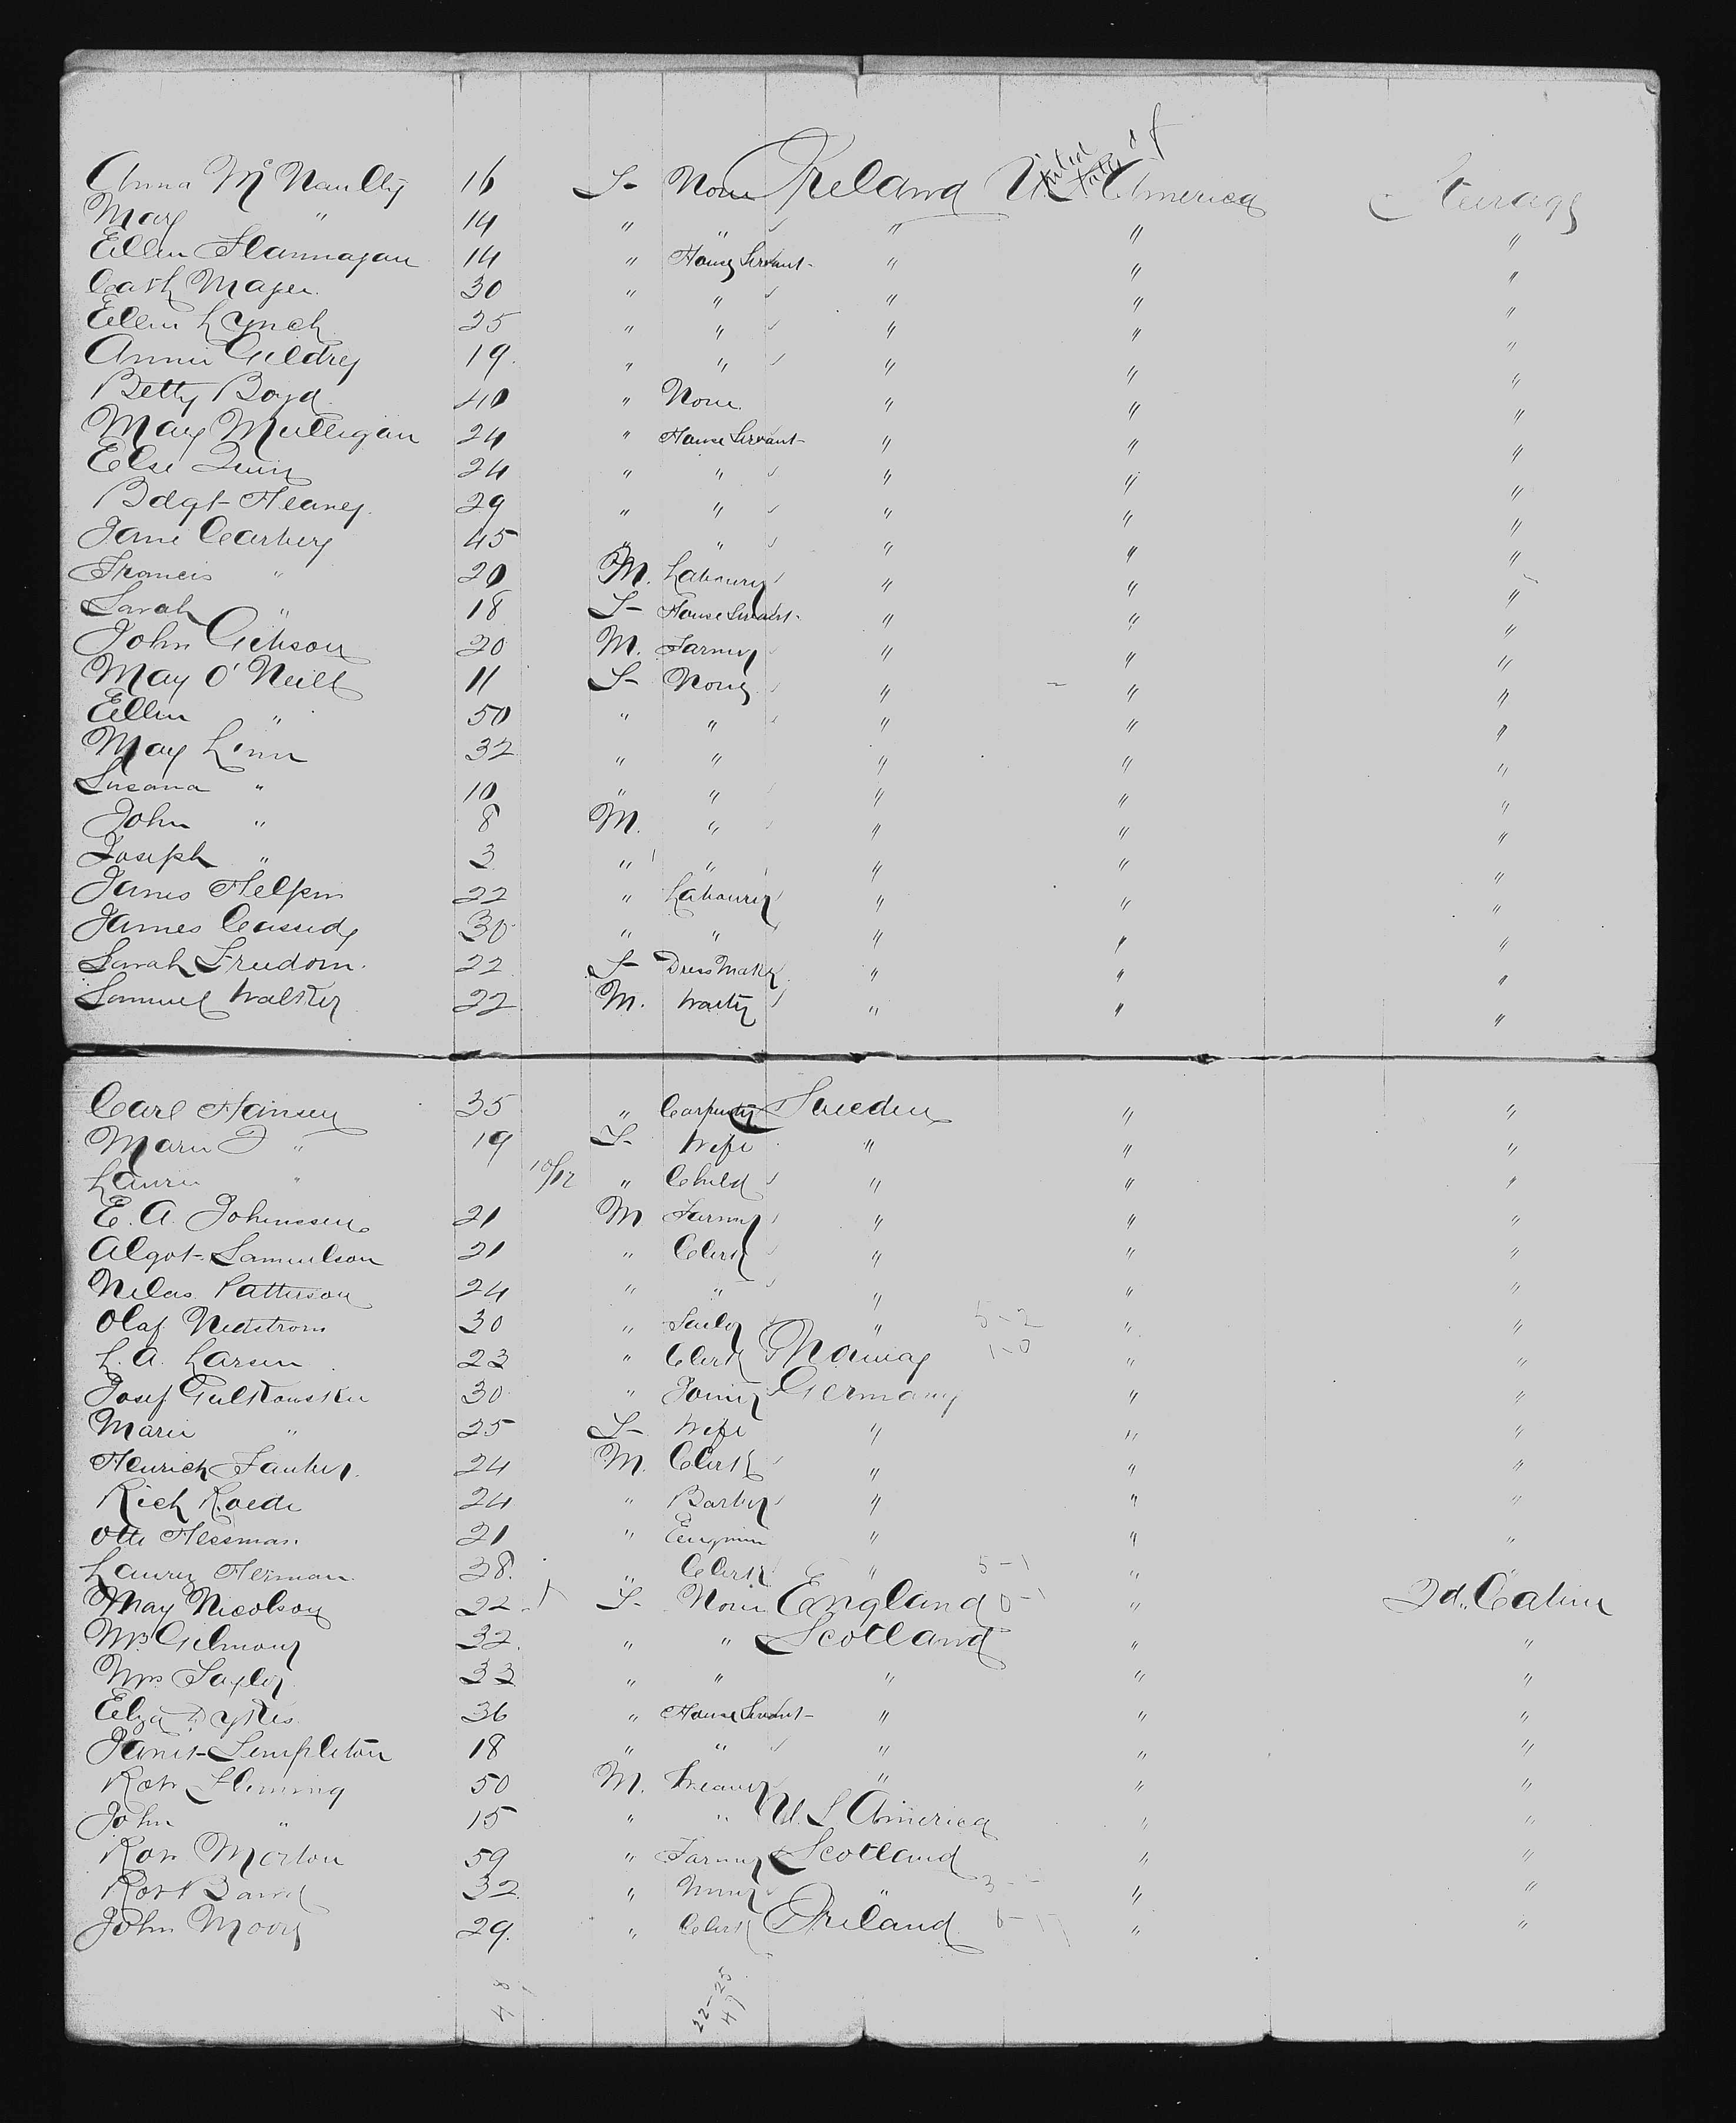 Anna McNaully 16 S- None Ireland U. S. America Steerage
United States of
Mary " 14 " " " " "
Ellen Flannagan 14 " House Servant- " " "
Cath Magee 30 " " " " "
Ellen Lynch 25 " " " " "
Annie Gildrey 19. " " " " "
Betty Boyd 40 " None " " "
Mary Mulligan 24 " House Servant- " " "
Else Quin 24 " " " " "
Bdgt- Heaney. 29 " " " " "
Jane Carbery 45 " " " " "
Francis " 20 M. Labourer " " "
Sarah " 18 S- House Servant- " " "
John Gibson 20 M. Farmer " " "
May O'Neill 11 S- None " " "
Ellen " 50 " " " " "
May Linn 32 " " " " "
Susana " 10 " " " " "
John " 8 M. " " " "
Joseph " 3 " " " " "
James Helpin 22 " Labourer " " "
James Cassidy 30 " " " " "
Sarah Freedom. 22 S- Dress Maker " " "
Samuel Walker 22 M. Waiter " " "
Carl Hansen 35 " Carpenter Sweden " "
Marie J " 19 S- Wife " " "
Laurie " 10/12 " Child " " "
E. A. Johnssen 21 M Farmer " " "
Algot- Samuelson 21 " Clerk " " "
Nelas Patterson 24 " " " " "
Olaf Nedstrom 30 " Sailor " 5-2 " "
L. A. Larsen 23 " Clerk Norway 1-0 " "
Josef Gulkowskie 30 " Joiner Germany " "
Marie " 25 S- Wife " " "
Heinrich Fauber. 24 M. Clerk " " "
Rich Roede 24 " Barber " " "
Otto Hessman 21 " Engineer " " "
Laury Herman 38. " Clerk " 5-1 " "
May Nicolson 22 S- None England 0-1 " 2d. Cabin
Mrs Gilmour 32 " " Scotland " "
Mrs Taylor 33 " " " " "
Eliza Dykes 36 " House Servant- " " "
Janet- Templeton 18 " " " " "
Robt Fleming 50 M. Weaver " " "
John " 15 " " U. S America " "
Robt Morton 59 " Farmer Scotland " "
Robt Baird 32 " Miner " " "
John Moore 29. " Clerk Ireland " "
48
22-25
47